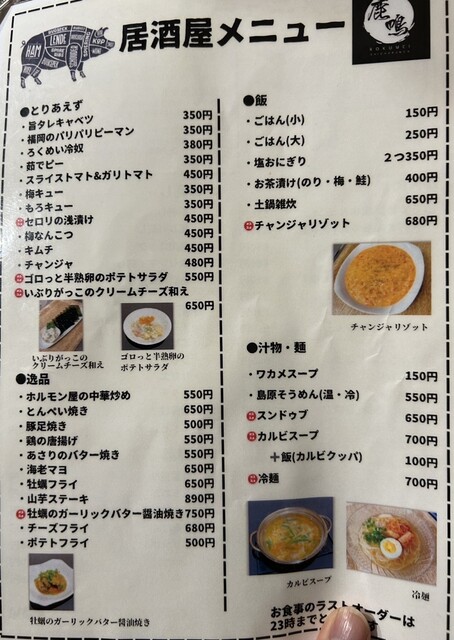 居酒屋メニュー
鹿鳴
HAM
●とりあえず
・旨タレキャベツ 350円
・福岡のパリパリピーマン 350円
・ろくめい冷奴 380円
・茹でピー 350円
・スライストマト&ガリトマト 450円
・梅キュー 350円
・もろキュー 350円
セロリの浅漬け 450円
・梅なんこつ 450円
・キムチ 450円
・チャンジャ 480円
ゴロっと半熟卵のポテトサラダ 550円
いぶりがっこのクリームチーズ和え
650円
いぶりがっこの
クリームチーズ和え
ゴロっと半熟卵の
ポテトサラダ
●逸品
・ホルモン屋の中華炒め 550円
・とんぺい焼き 650円
・豚足焼き 500円
・鶏の唐揚げ 550円
・あさりのバター焼き 550円
・海老マヨ 650円
・牡蠣フライ 650円
・山芋ステーキ 890円
牡蠣のガーリックバター醤油焼き750円
・チーズフライ 680円
・ポテトフライ 500円
牡蠣のガーリックバター醤油焼き
●飯
・ごはん(小) 150円
・ごはん(大) 250円
・塩おにぎり 2つ350円
・お茶漬け(のり・梅・鮭) 400円
・土鍋雑炊 650円
チャンジャリゾット 680円
チャンジャリゾット
●汁物・麺
・ワカメスープ 150円
・島原そうめん(温・冷) 550円
スンドゥブ 650円
カルビスープ 700円
＋飯(カルビクッパ) 100円
冷麺 700円
カルビスープ
冷麺
お食事のラストオーダーは
23時までと